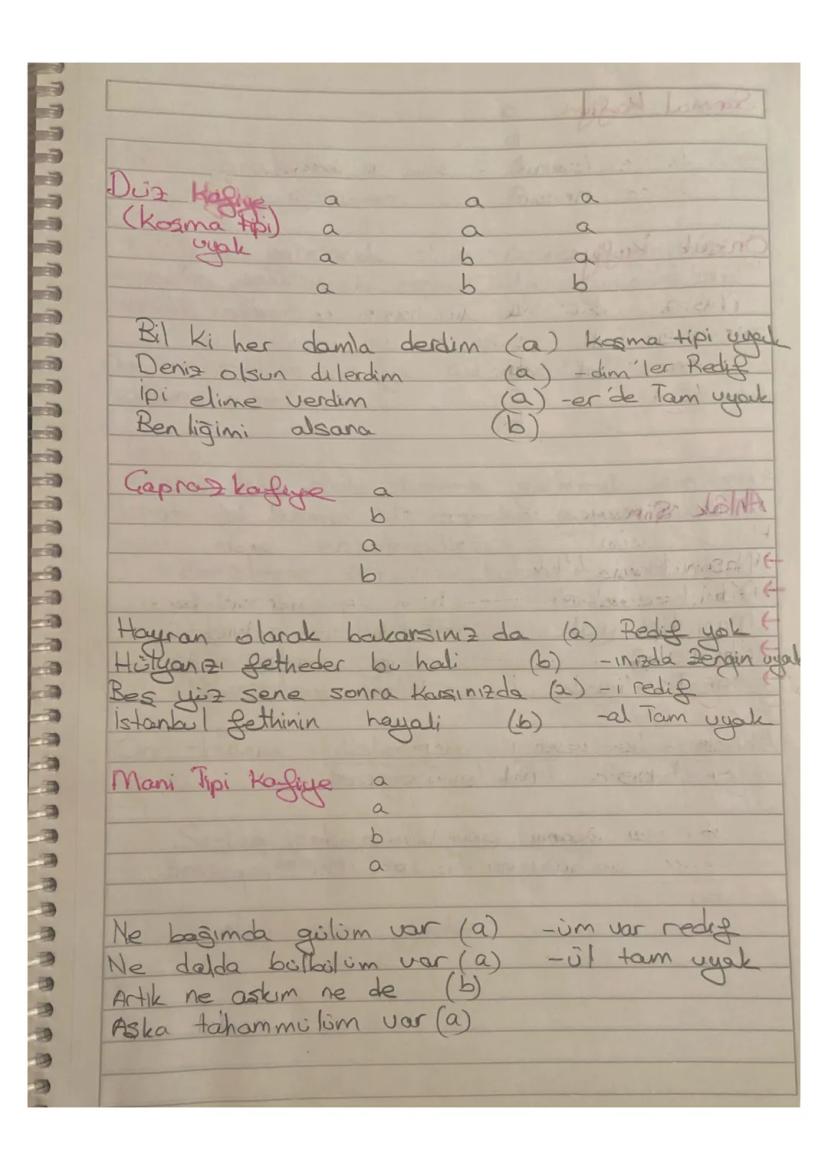 Düz Kafiye a a a
(Koşma tipi) a a a
uyak a b a
a b b
Bil ki her damla derdim (a) koşma tipi uyak
Deniz olsun dilerdim (a) -dim'ler Redif
İpi elime verdim (a) -er'de Tam uyak
Benliğimi alsana (b)
Çapraz kafiye a
b
a
b
Hayran olarak bakarsınız da (a) Redif yok
Hülyanızı fetheder bu hali (b) -ınızda zengin uyak
Beş yüz sene sonra karşınızda (a) -i redif
İstanbul fethinin hayali (b) -al Tam uyak
Mani Tipi Kafiye a
a
b
a
Ne bağımda gülüm var (a) -üm var redif
Ne dalda bülbülüm var (a) -ül tam uyak
Artık ne aşkım ne de (b)
Aşka tahammülüm var (a)